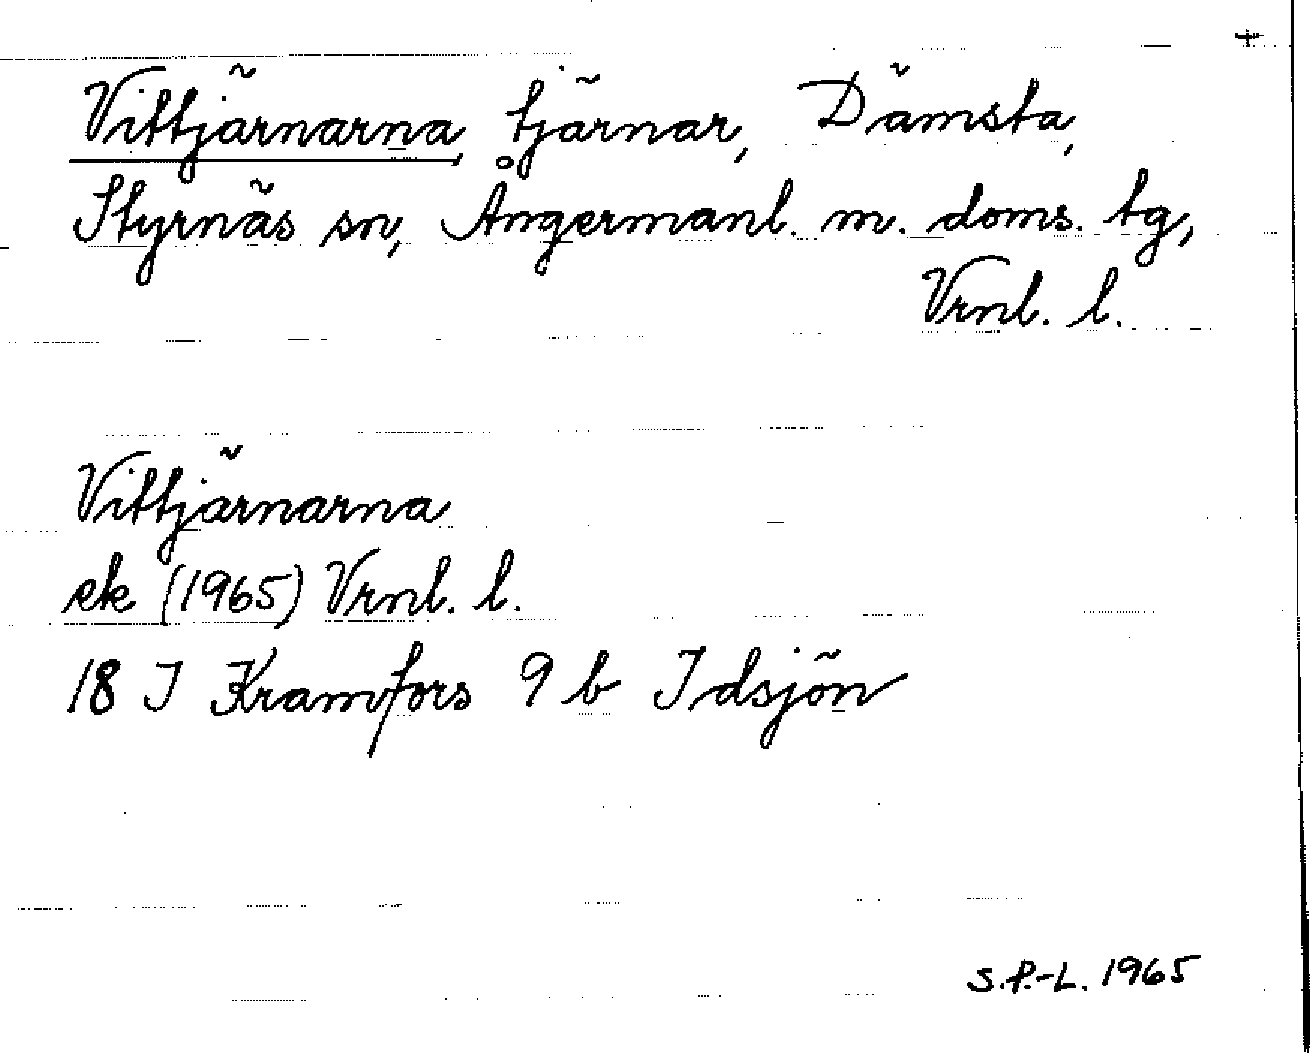 +
Vittjärnarna, tjärnar, Dämsta,
Styrnäs sn, Ångermanl. m. doms. tg,
Vrnl. l.
Vittjärnarna
ek (1965) Vrnl. l.
18 I Kramfors 9 b Idsjön
S.P.-L. 1965